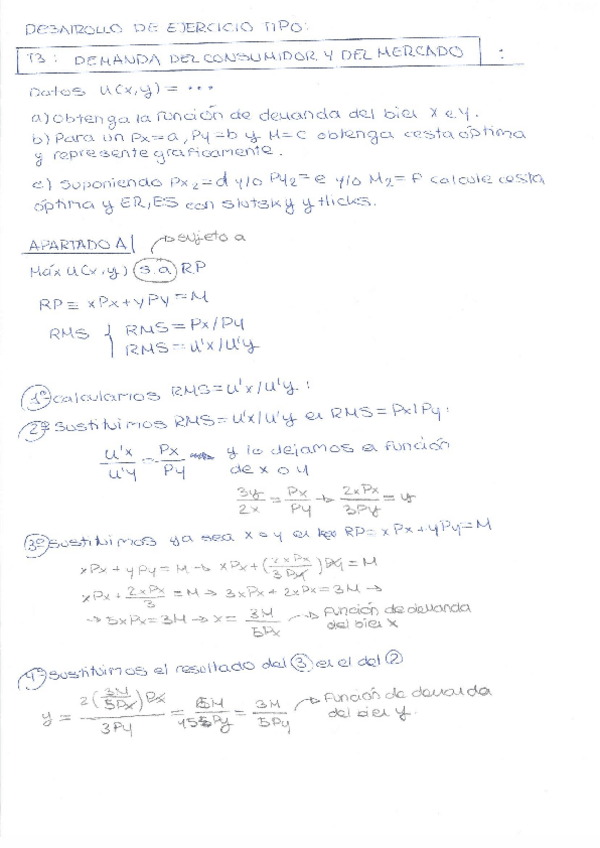 DESAIROLLO DE EJERCICIO TIPO:
T3: DEMANDA DEL CONSUMIDOR Y DEL MERCADO :
Datos U(x,y) = ...
a) Obtenga la función de demanda del bien X e Y.
b) Para un Px=a, Py=b y M=c obtenga cesta óptima
y represente graficamente.
c) Suponiendo Px2=d y/o Py2=e y/o M2=f calcule cesta
óptima y ER, ES con Slutsky y Hicks.
APARTADO A | → sujeto a
Máx U(x,y) s.a RP
RP≡ xPx+yPy=M
RMS { RMS = Px/Py
RMS = U'x/U'y
1º calculamos RMS=U'x/U'y:
2º sustituimos RMS=U'x/U'y en RMS=Px/Py:
U'x/U'y = Px/Py → y lo dejamos en función
de x o y
3y/2x = Px/Py → 2xPx/3Py = y
3º sustituimos ya sea x o y en RP= xPx+yPy=M
xPx+yPy=M → xPx+(2xPx/3Py)Py=M
xPx+2xPx/3=M → 3xPx+2xPx=3M →
→ 5xPx=3M → x= 3M/5Px → Función de demanda
del bien X
4º sustituimos el resultado del 3 en el del 2
y = 2(3M/5Px)Px/3Py = 6M/15Py = 3M/5Py → Función de demanda
del bien y.